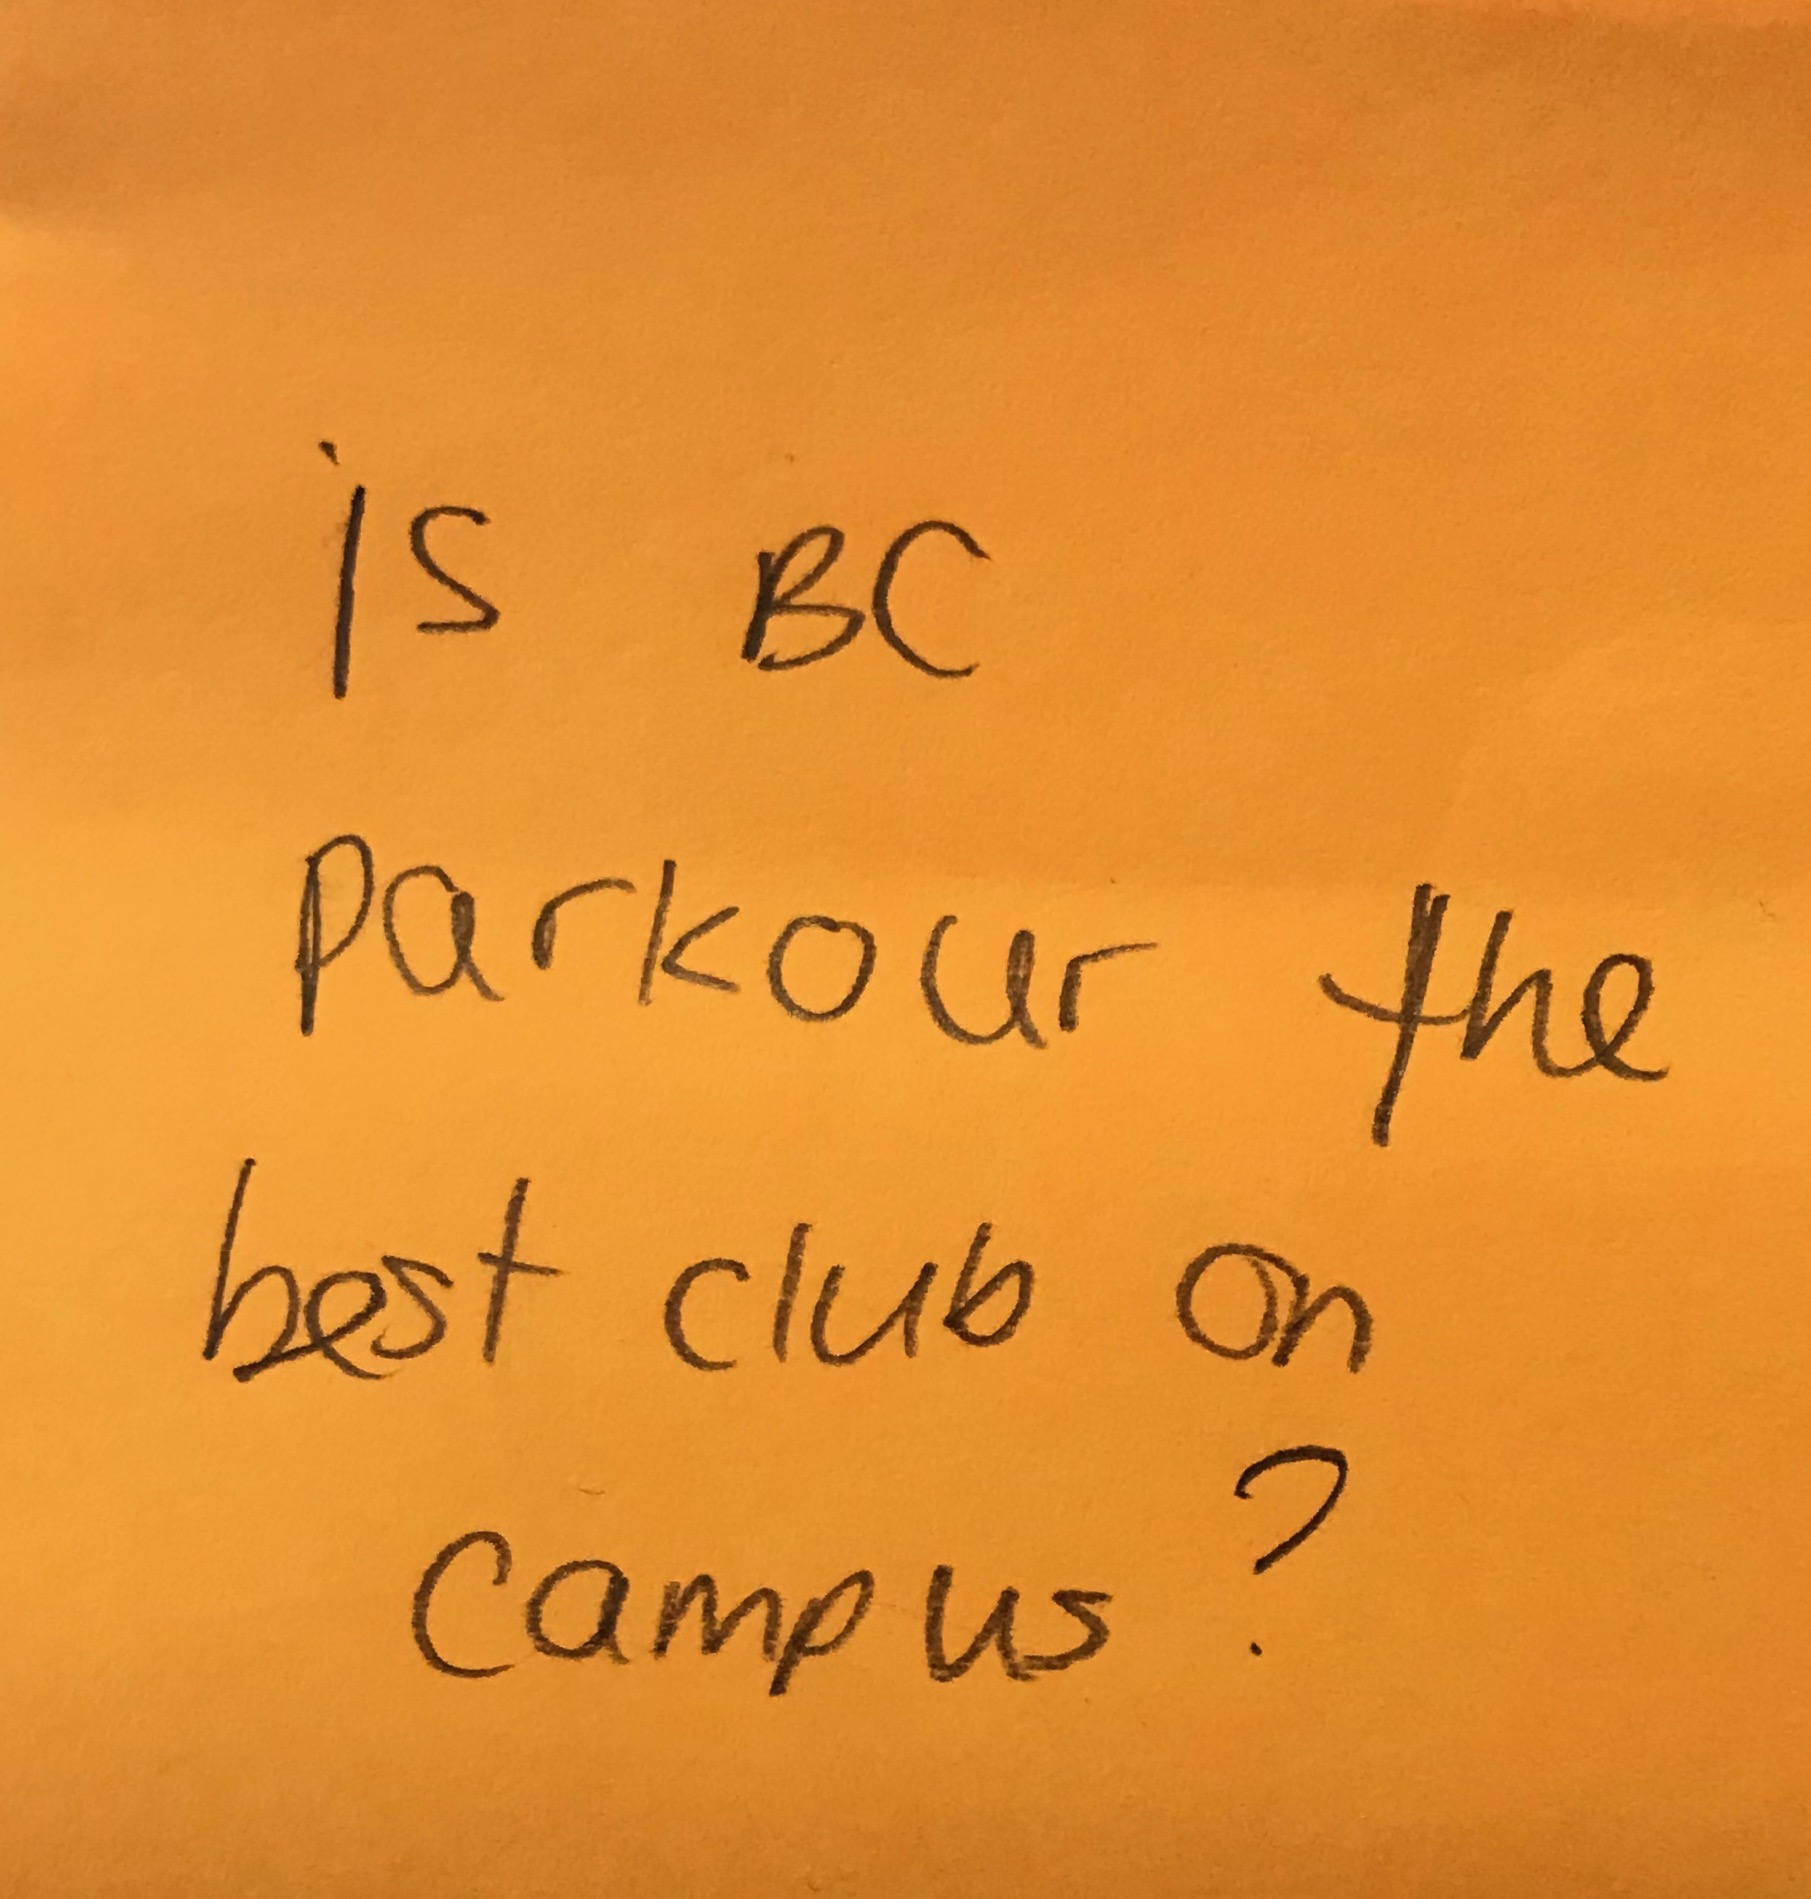 is BC
parkour the
best club on
campus?